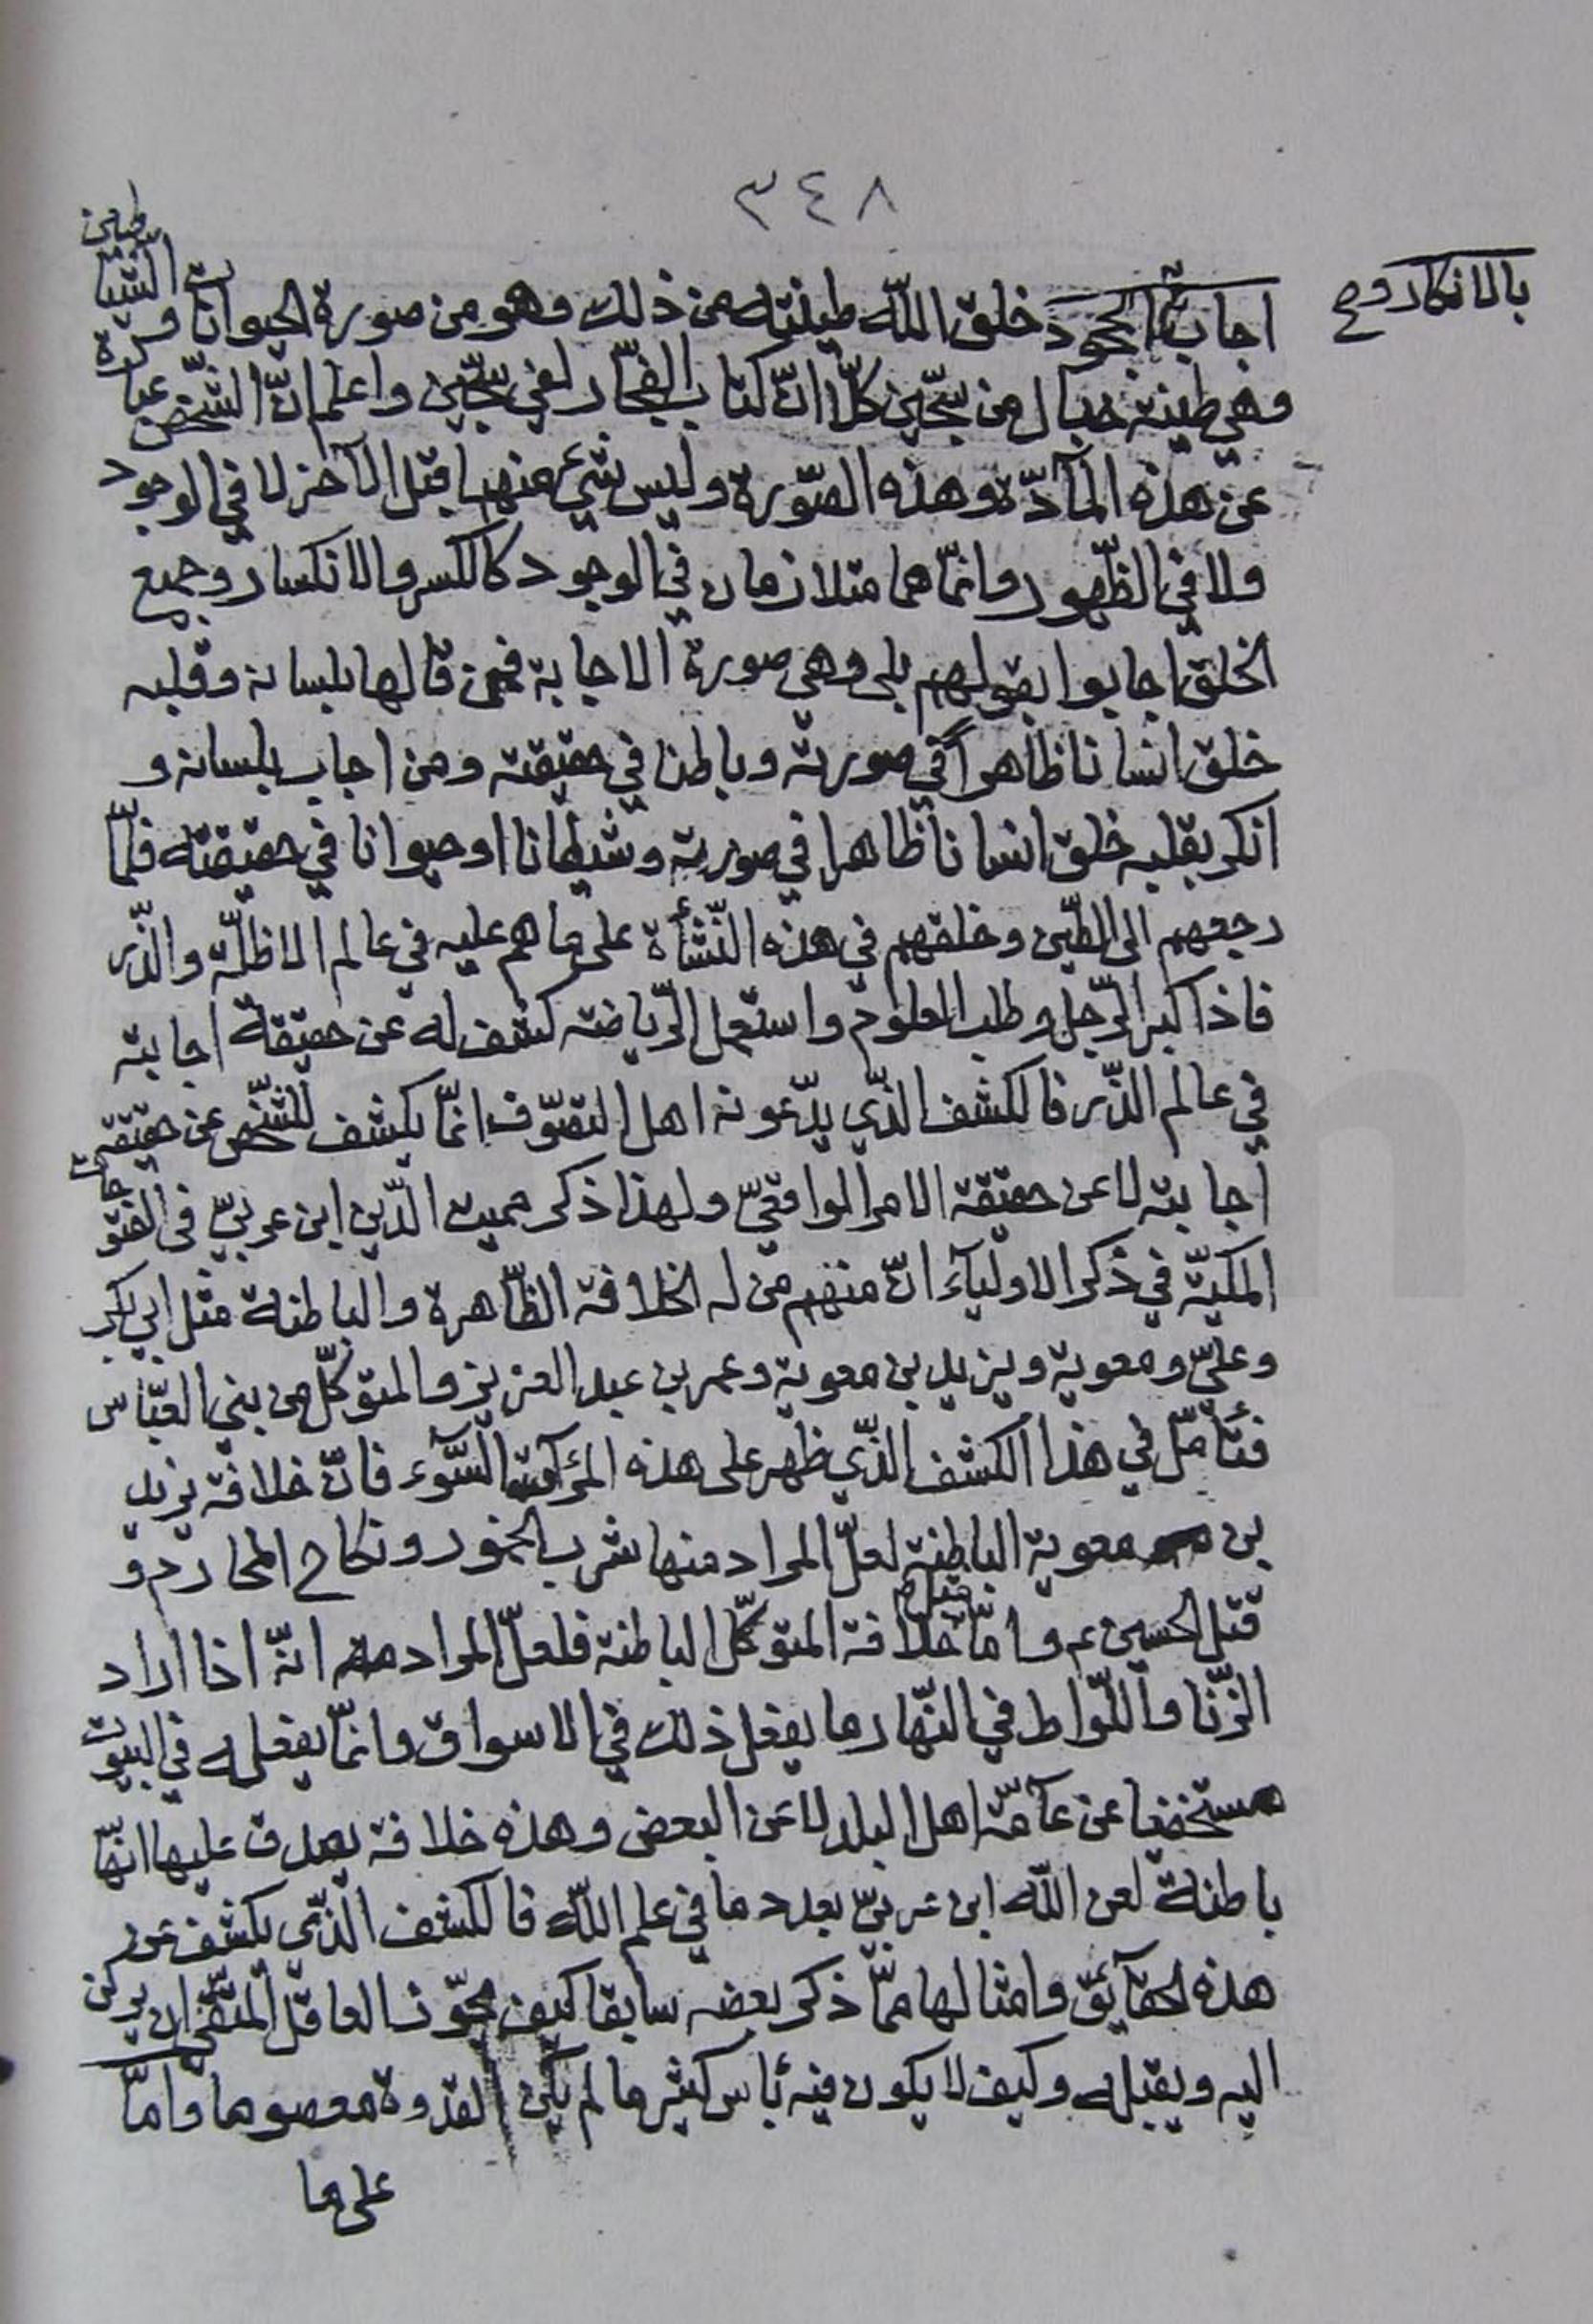 ٣٤٨
بالانكار و ص
اجاب الجحود خلق اللّه طينته من ذلك وهو من صورة الحيوانات والشياطين
وهي طينة خبال من سجّين كلّا انّ كتاب الفجّار لفي سجّين واعلم انّ الشّخص عبارة
عن هذه المآدّة وهذه الصّورة وليس شيء منهما قبل الآخر لا في الوجود
ولا في الظّهور وانّما هما متلازمان في الوجود كالكسر والانكسار وجميع
الخلق اجابوا بقولهم بلى وهي صورة الاجابة فمن قالها بلسانه وقلبه
خلق انسانا ظاهراً في صورته وباطنا في حقيقته ومن اجاب بلسانه و
انكر بقلبه خلق انسانا ظاهرا في صورته وشيطانا او حيوانا في حقيقته فلمّا
رجعهم الى الطّين وخلقهم في هذه النّشأة على ما هم عليه في عالم الاظلّة والذّر
فاذا كبر الرّجل وطلب العلوم واستعمل الرّياضة كشف له عن حقيقة اجابته
في عالم الذّر فالكشف الذّي يدّعونه اهل التصّوف انمّا يكشف للشّخص عن حقيقة
اجابته لا عن حقيقة الامر الواقعيّ ولهذا ذكر مميت الدّين ابن عربيّ في الفتوحات
المكيّة في ذكر الاوليآء انّ منهم من له الخلافة الظّاهرة والباطنة مثل ابي بكر
وعليّ ومعوية ويزيد بن معوية وعمر بن عبد العزيز والمتوكّل من بني العبّاس
فتأمّل في هذا الكشف الذّي ظهر على هذه المرآة السّوء فانّ خلافة يزيد
بن معوية الباطنة لعلّ المراد منها شرب الخمور ونكاح المحارم و
قتل الحسين ع م وامّا خلافة المتوكّل الباطنة فلعلّ المراد منه انّه اذا اراد
الزّنا واللّواط في النّهار ما يفعل ذلك في الاسواق وانمّا يفعله في البيوت
مستخفيا عن عآمّة اهل البلد لا عن البعض وهذه خلافة يصدق عليها انّها
باطنة لعن اللّه ابن عربيّ بعدد ما في علم اللّه فالكشف الذّي يكشف عن
هذه الحقآئق وامثالها ممّا ذكر بعضه سابقا كيف يجوّز العاقل المتّقي ان يركن
اليه ويقبله وكيف لا يكون فيه بأس كثير ما لم يكن القدوة معصوما وامّا
على ما